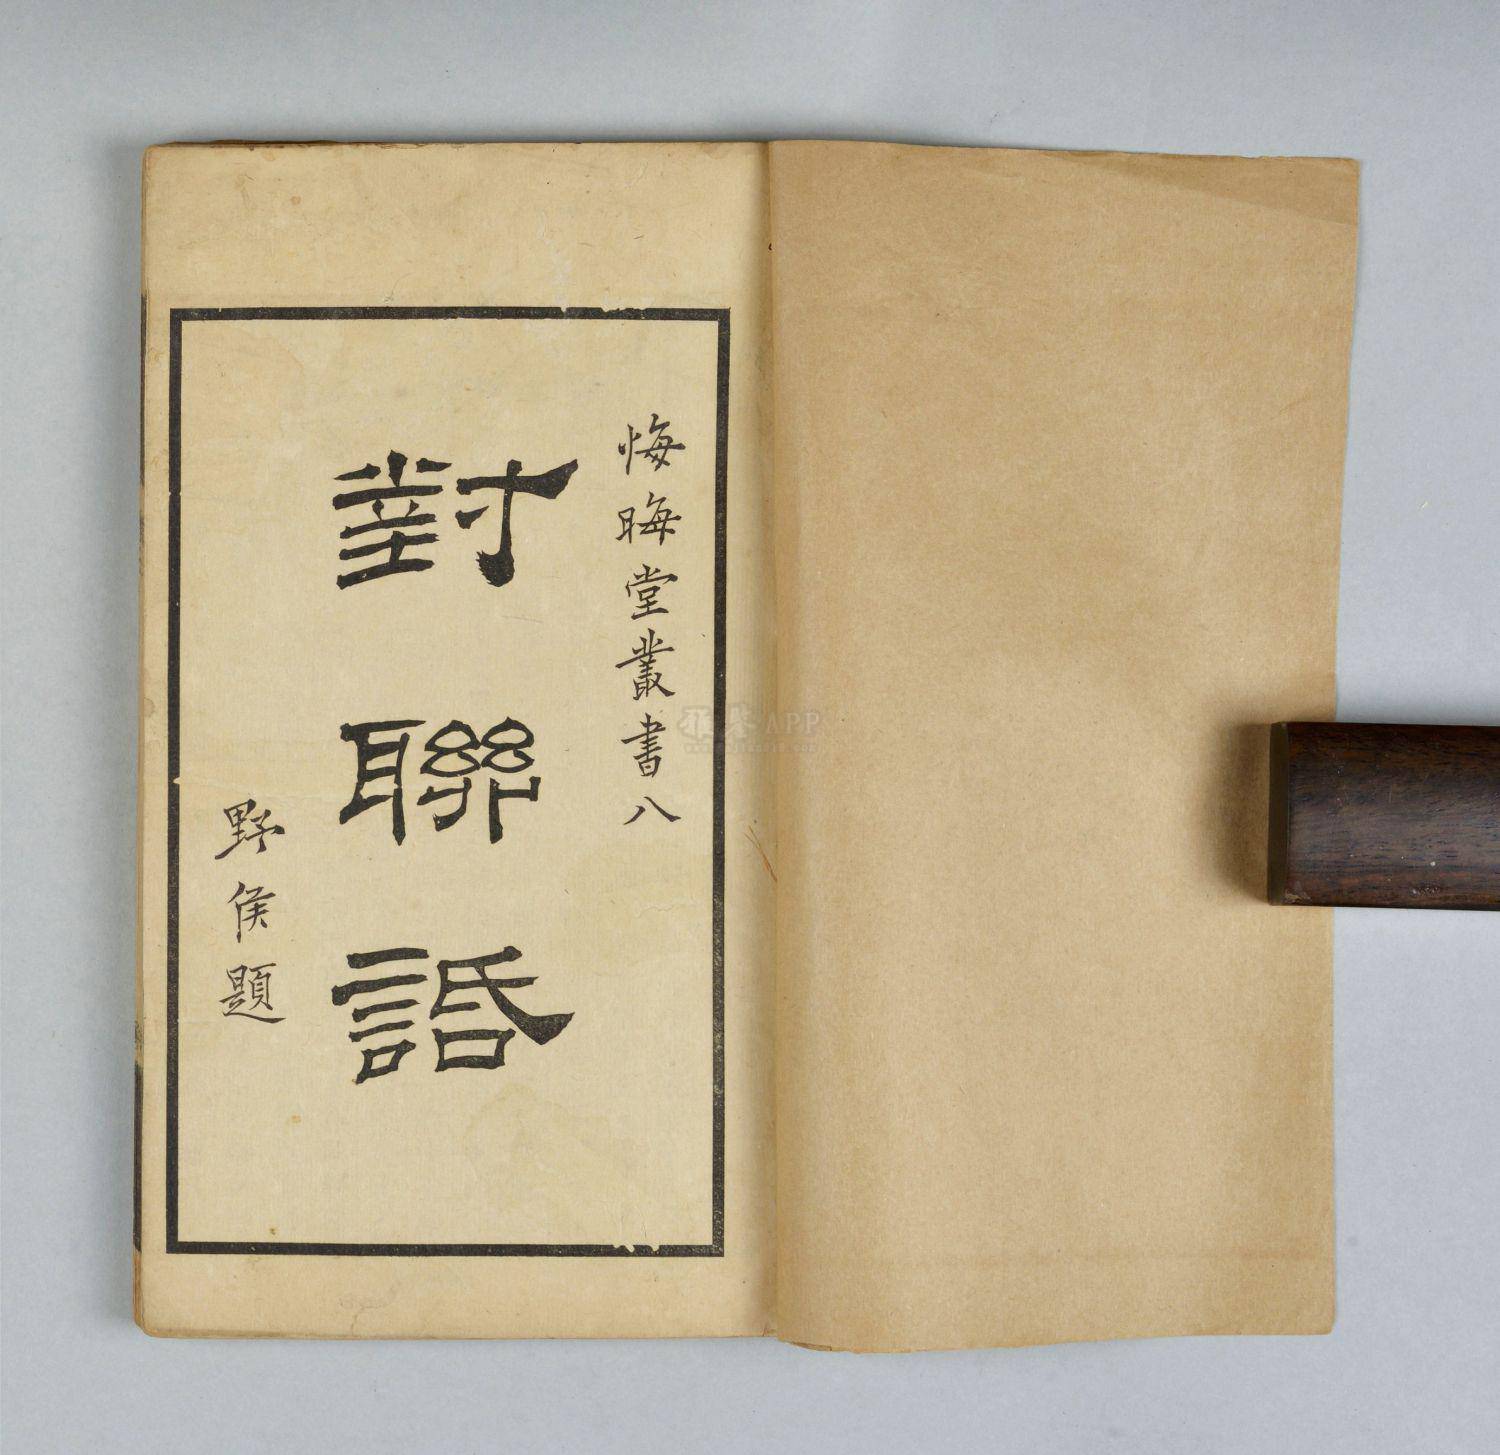 悔晦堂叢書八
對聯話
野侯題
雅昌APP